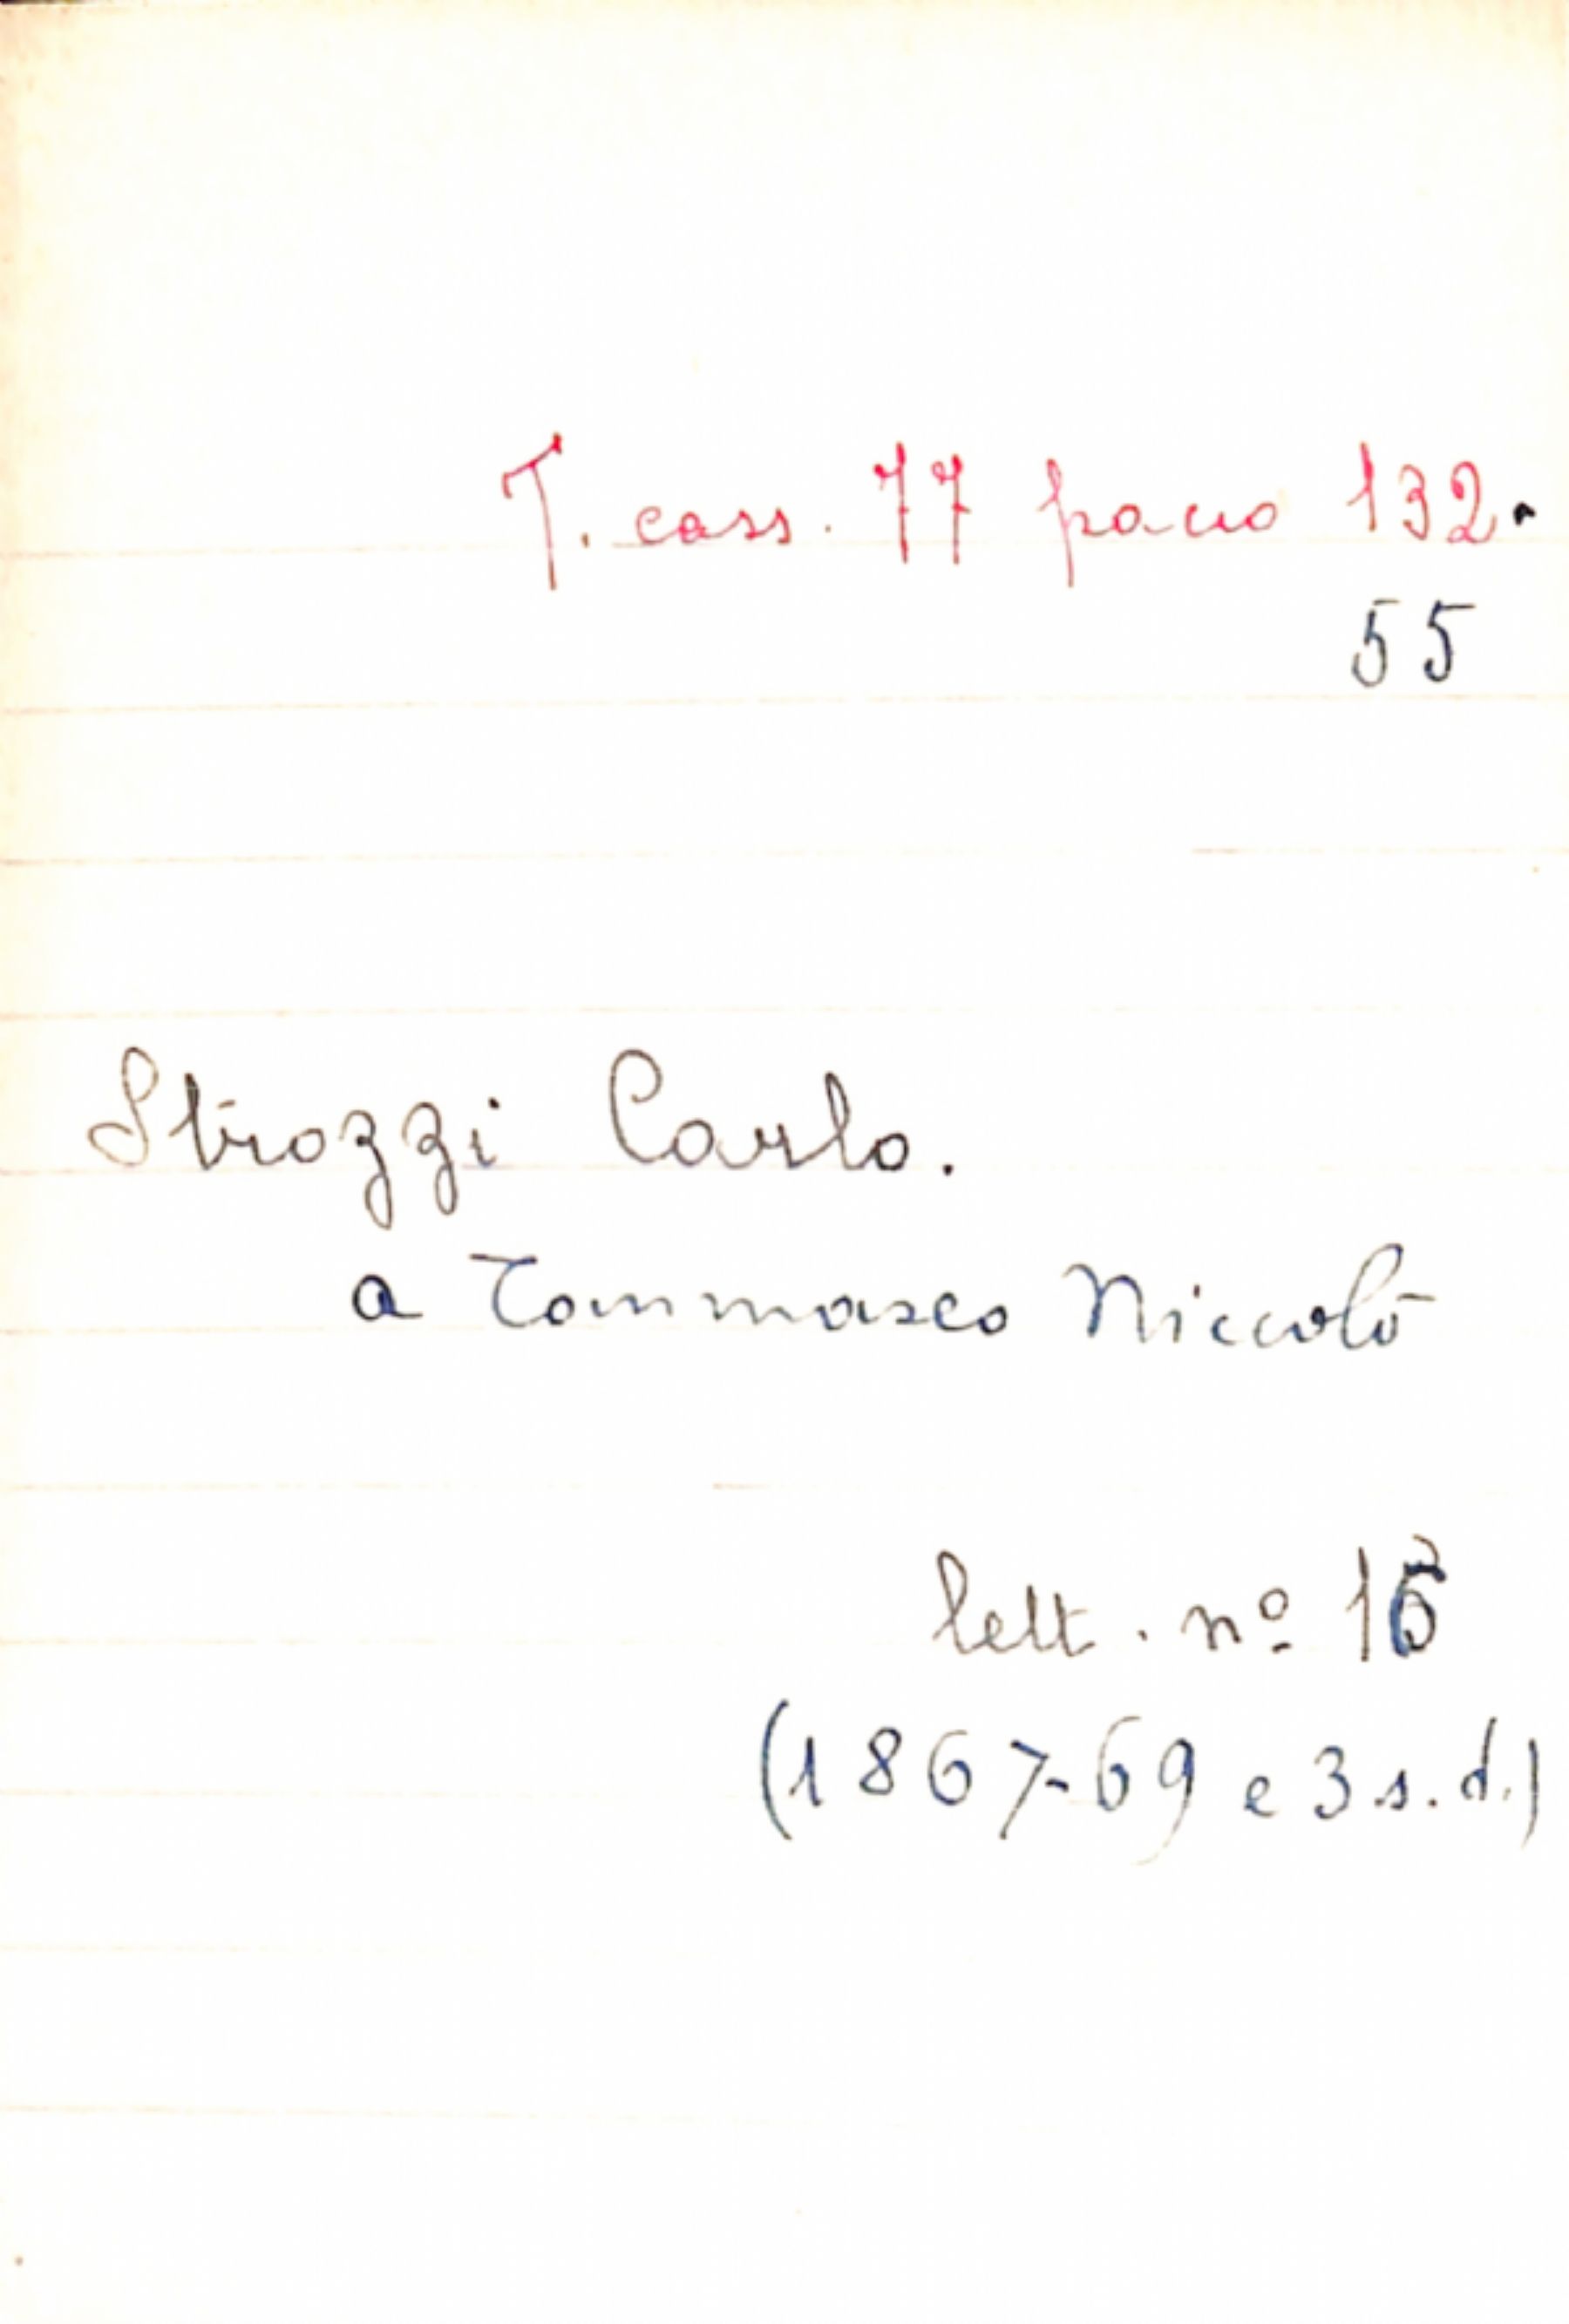 T. cass. 77 pacco 132.
55
Strozzi Carlo.
a Tommaseo Niccolò
lett. nº 16
(1867-69 e 3 s.d.)